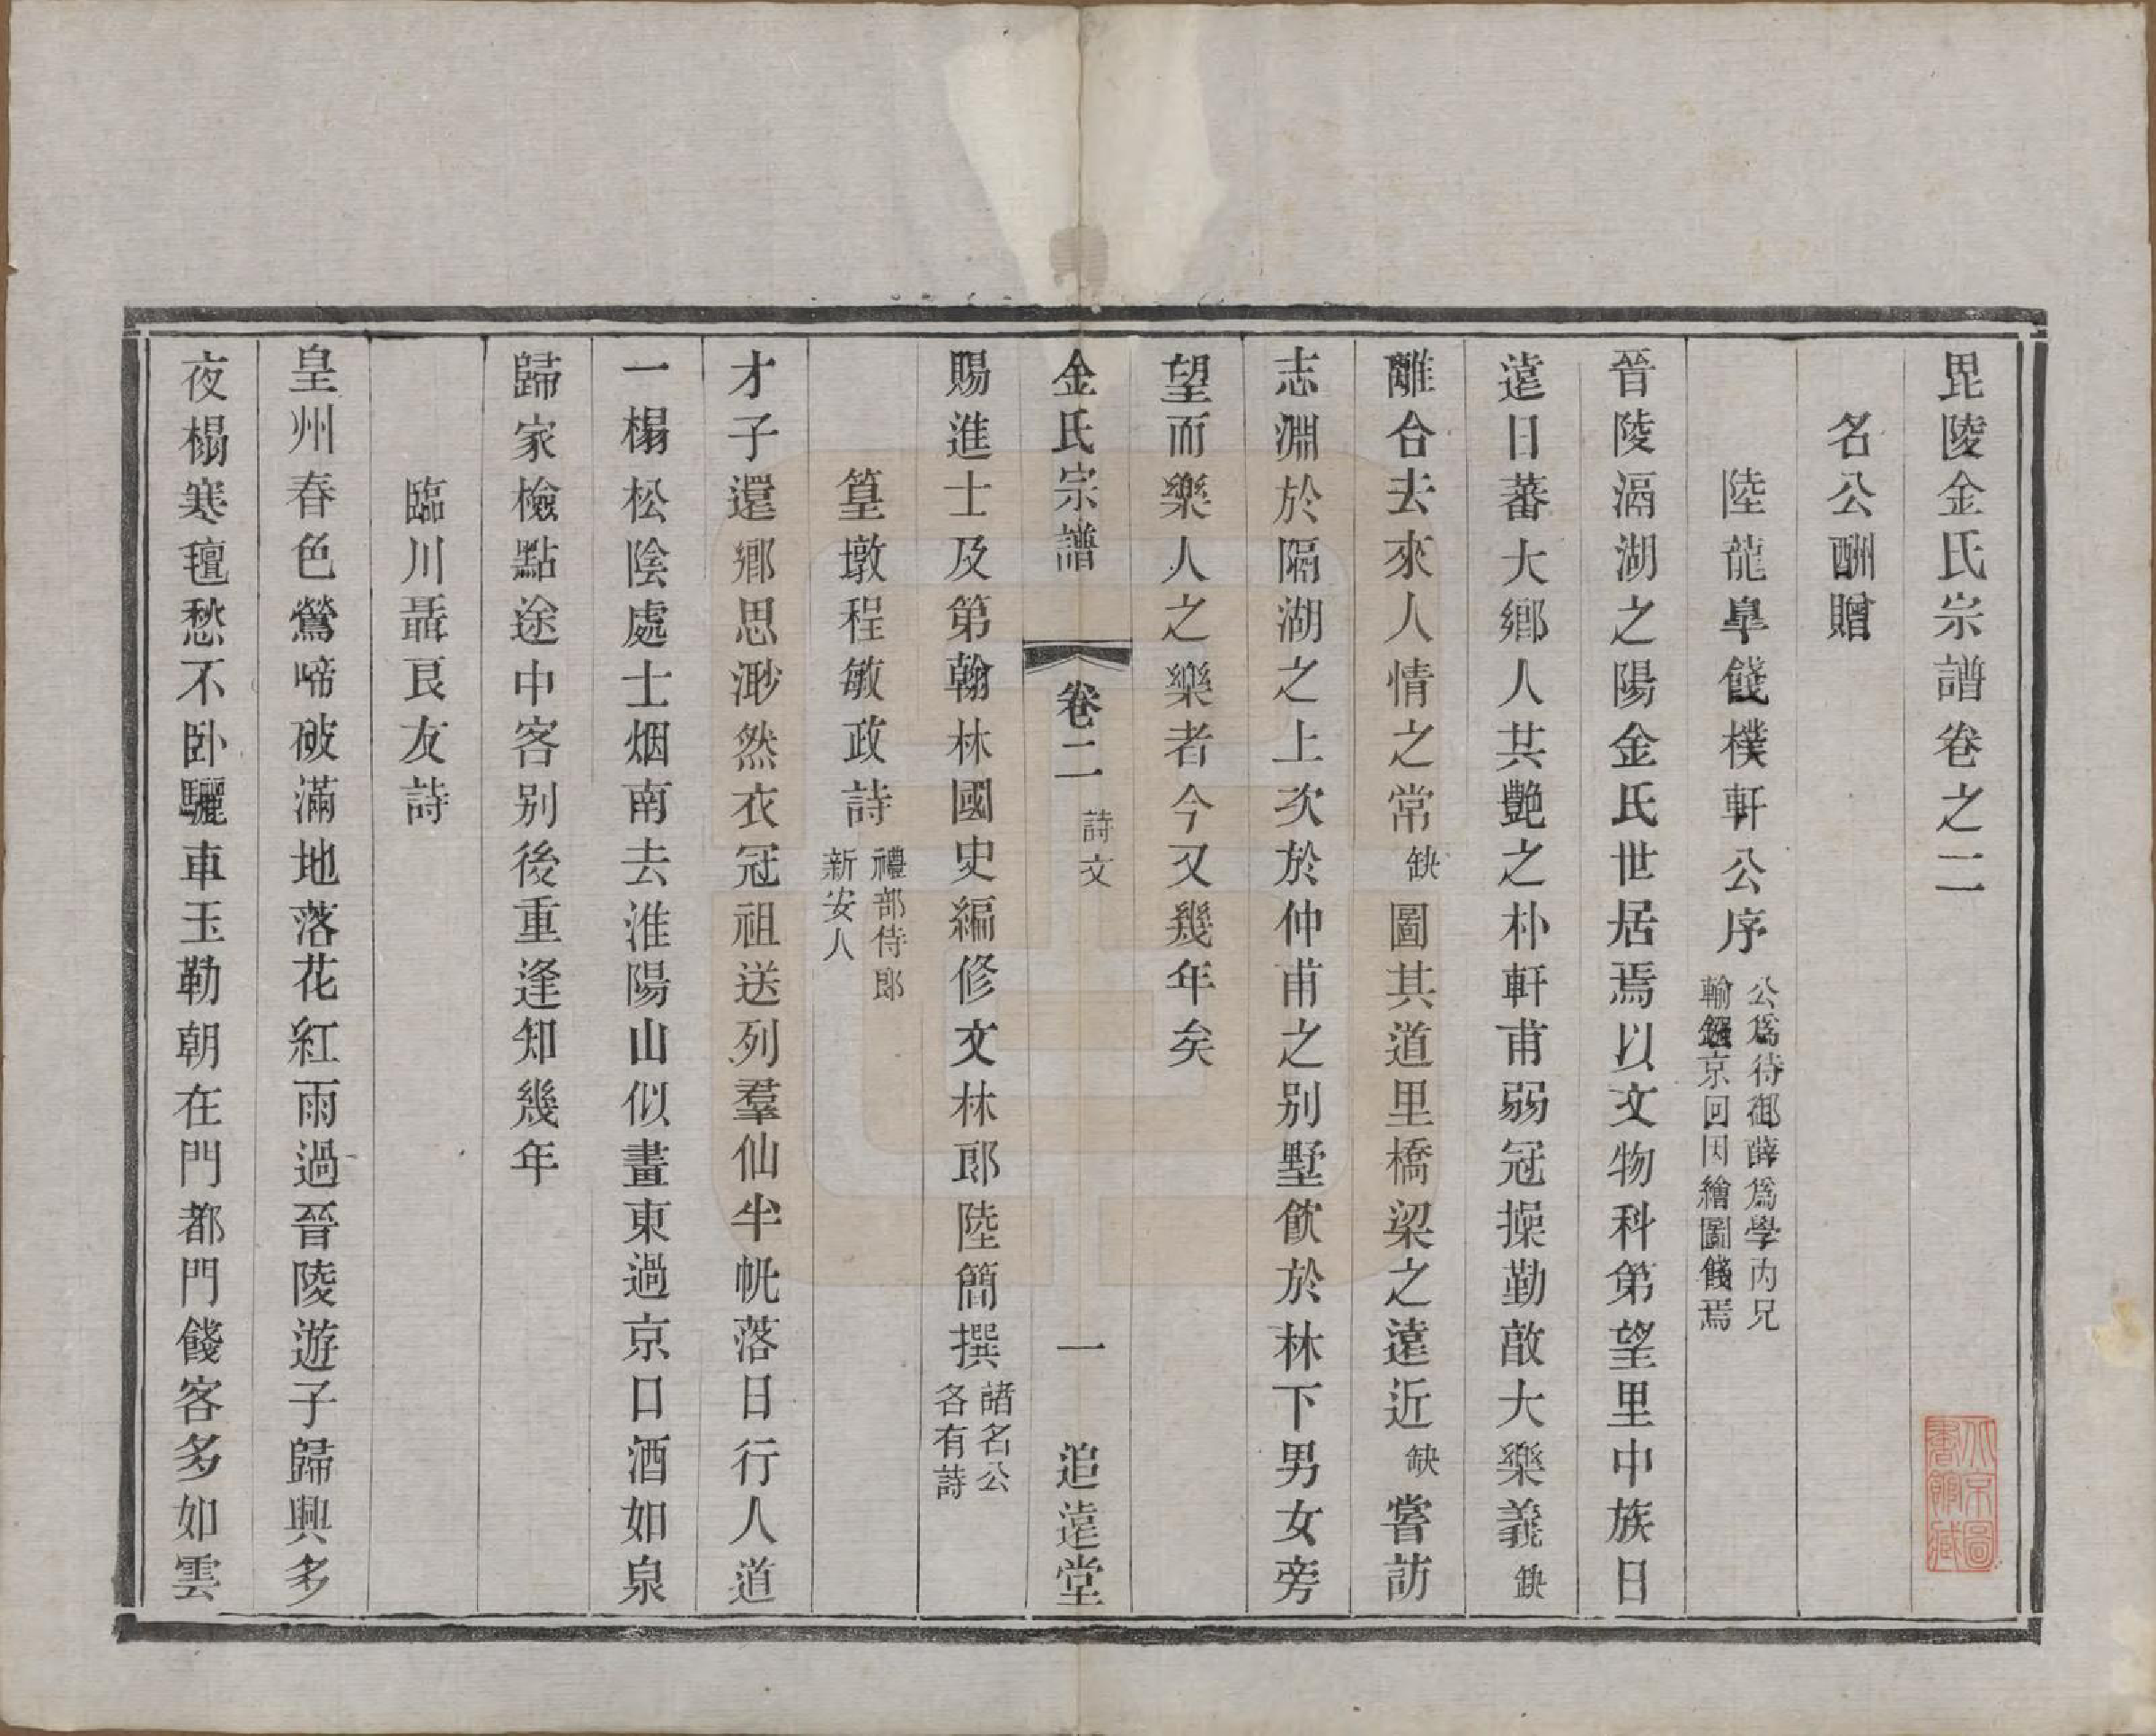 毘陵金氏宗譜卷之二
名公酬贈
陸龍臯餞樸軒公序
公爲待御薛爲學內兄
輸糧京回因繪圖餞焉
晉陵滆湖之陽金氏世居焉以文物科第望里中族日
遠日蕃大鄉人共艷之朴軒甫弱冠操勤敢大樂義缺
離合去來人情之常缺圖其道里橋梁之遠近缺嘗訪
志淵於隔湖之上次於仲甫之别墅飲於林下男女旁
望而樂人之樂者今又幾年矣
金氏宗譜 卷二 詩文 一 追遠堂
賜進士及第翰林國史編修文林郎陸簡撰
諸名公
各有詩
篁墩程敏政詩
禮部侍郎
新安人
才子還鄉思渺然衣冠祖送列羣仙半帆落日行人道
一榻松陰處士烟南去淮陽山似畫東過京口酒如泉
歸家檢點途中客别後重逢知幾年
臨川聶艮友詩
皇州春色鶯啼破滿地落花紅雨過晉陵遊子歸興多
夜榻寒氊愁不卧驪車玉勒朝在門都門餞客多如雲
北京圖
書館藏